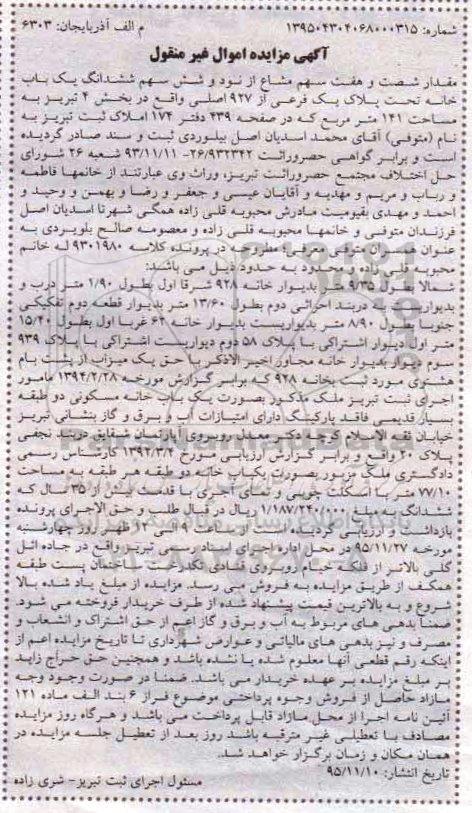 شماره: ۱۳۹۵۰۴۳۰۴۰۶۸۰۰۰۳۱۵ م الف آذربایجان: ۶۳۰۳
آگهی مزایده اموال غیر منقول
مقدار شصت و هفت سهم مشاع از نود و شش سهم ششدانگ یک باب
خانه تحت پلاک یک فرعی از ۹۲۷ اصلی واقع در بخش ۴ تبریز به
مساحت ۱۴۱ متر مربع که در صفحه ۴۳۹ دفتر ۱۷۴ املاک ثبت تبریز به
نام (متوفی) آقای محمد اسدیان اصل بیلوردی ثبت و سند صادر گردیده
است و برابر گواهی حصروراثت ۲۶/۹۳۲۳۴۲- ۹۳/۱۱/۱۱ شعبه ۲۶ شورای
حل اختلاف مجتمع حصروراثت تبریز، وراث وی عبارتند از خانمها فاطمه
و رباب و مریم و مهدیه و آقایان عیسی و جعفر و رضا و بهمن و وحید و
احمد و مهدی بقیومیت مادرش محبوبه قلی زاده همگی شهرتا اسدیان اصل
فرزندان متوفی و خانمها محبوبه قلی زاده و معصومه صالح بلوردی به
عنوان همسران متوفی مطروحه در پرونده کلاسه ۹۳۰۱۹۸۰ له خانم
محبوبه قلی زاده و محدود به حدود ذیل می باشد:
شمالا بطول ۹/۳۵ متر بدیوار خانه ۹۲۸ شرقا اول بطول ۱/۹۰ متر درب و
بدیوار است به دربند احداثی دوم بطول ۱۳/۶۰ متر بدیوار قطعه دوم تفکیکی
جنوبا بطول ۸/۹۰ متر بدیواریست بدیوار خانه ۶۲ غربا اول بطول ۱۵/۴۰
متر اول دیوار اشتراکی با پلاک ۵۸ دوم دیواریست اشتراکی با پلاک ۹۳۹
سوم دیوار بدیوار خانه مجاور اخیر الاذکر با حق یک میزاب از پشت بام
هشتوی مورد ثبت بخانه ۹۲۸ که برابر گزارش مورخه ۱۳۹۴/۲/۲۸ مامور
اجرای ثبت تبریز ملک مذکور بصورت یک باب خانه مسکونی دو طبقه
بسیار قدیمی فاقد پارکینگ دارای امتیازات آب و برق و گاز بنشانی تبریز
خیابان ثقه الاسلام کوچه صدر معدل روبروی آپارتمان شقایق دربند نجفی
پلاک ۲۰ واقع و برابر گزارش ارزیابی مورخ ۱۳۹۲/۳/۲ کارشناس رسمی
دادگستری ملک مزبور بصورت یکباب خانه دو طبقه هر طبقه به مساحت
۷۷/۱۰ متر با اسکلت چوبی و نمای آجری با قدمت بیش از ۳۵ سال که
ششدانگ به مبلغ ۱/۱۸۷/۲۴۰/۰۰۰ ریال در قبال طلب و حق الاجرای پرونده
بازداشت و ارزیابی گردیده است از ساعت ۹ الی ۱۲ ظهر روز چهارشنبه
مورخه ۹۵/۱۱/۲۷ در محل اداره اجرای اسناد رسمی تبریز واقع در جاده ائل
گلی بالاتر از فلکه خیام روبروی قنادی تکدرخت ساختمان پست طبقه
همکف از طریق مزایده به فروش می رسد. مزایده از مبلغ یاد شده بالا
شروع و به بالاترین قیمت پیشنهاد شده از طرف خریدار فروخته می شود.
ضمنا بدهی های مربوط به آب و برق و گاز اعم از حق اشتراک و انشعاب و
مصرف و نیز بدهی های مالیاتی و عوارض شهرداری تا تاریخ مزایده اعم از
اینکه رقم قطعی آنها معلوم شده یا نشده باشد و همچنین حق حراج زاید
بر مبلغ مزایده بر عهده خریدار می باشد. ضمنا در صورت وجود وجه
مازاد حاصل از فروش وجوه پرداختی موضوع فراز ۶ بند الف ماده ۱۲۱
آئین نامه اجرا از محل مازاد قابل پرداخت می باشد و هرگاه روز مزایده
مصادف با تعطیلی غیر مترقبه باشد روز بعد از تعطیل جلسه مزایده در
همان مکان و زمان برگزار خواهد شد.
تاریخ انتشار: ۹۵/۱۱/۱۰
مسئول اجرای ثبت تبریز- شری زاده